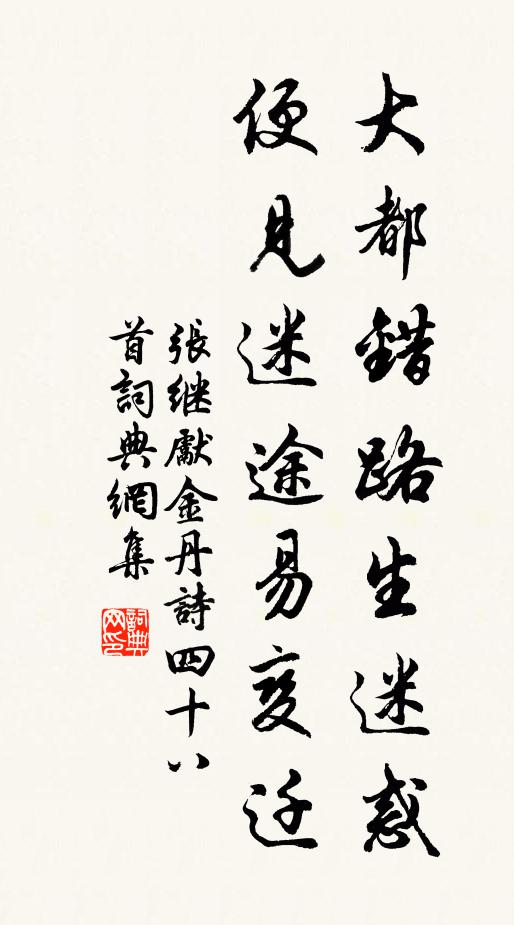 大都錯路生迷惑
便見迷途易变迁
張继獻金丹詩四十八
首詞典網集
詞典網印